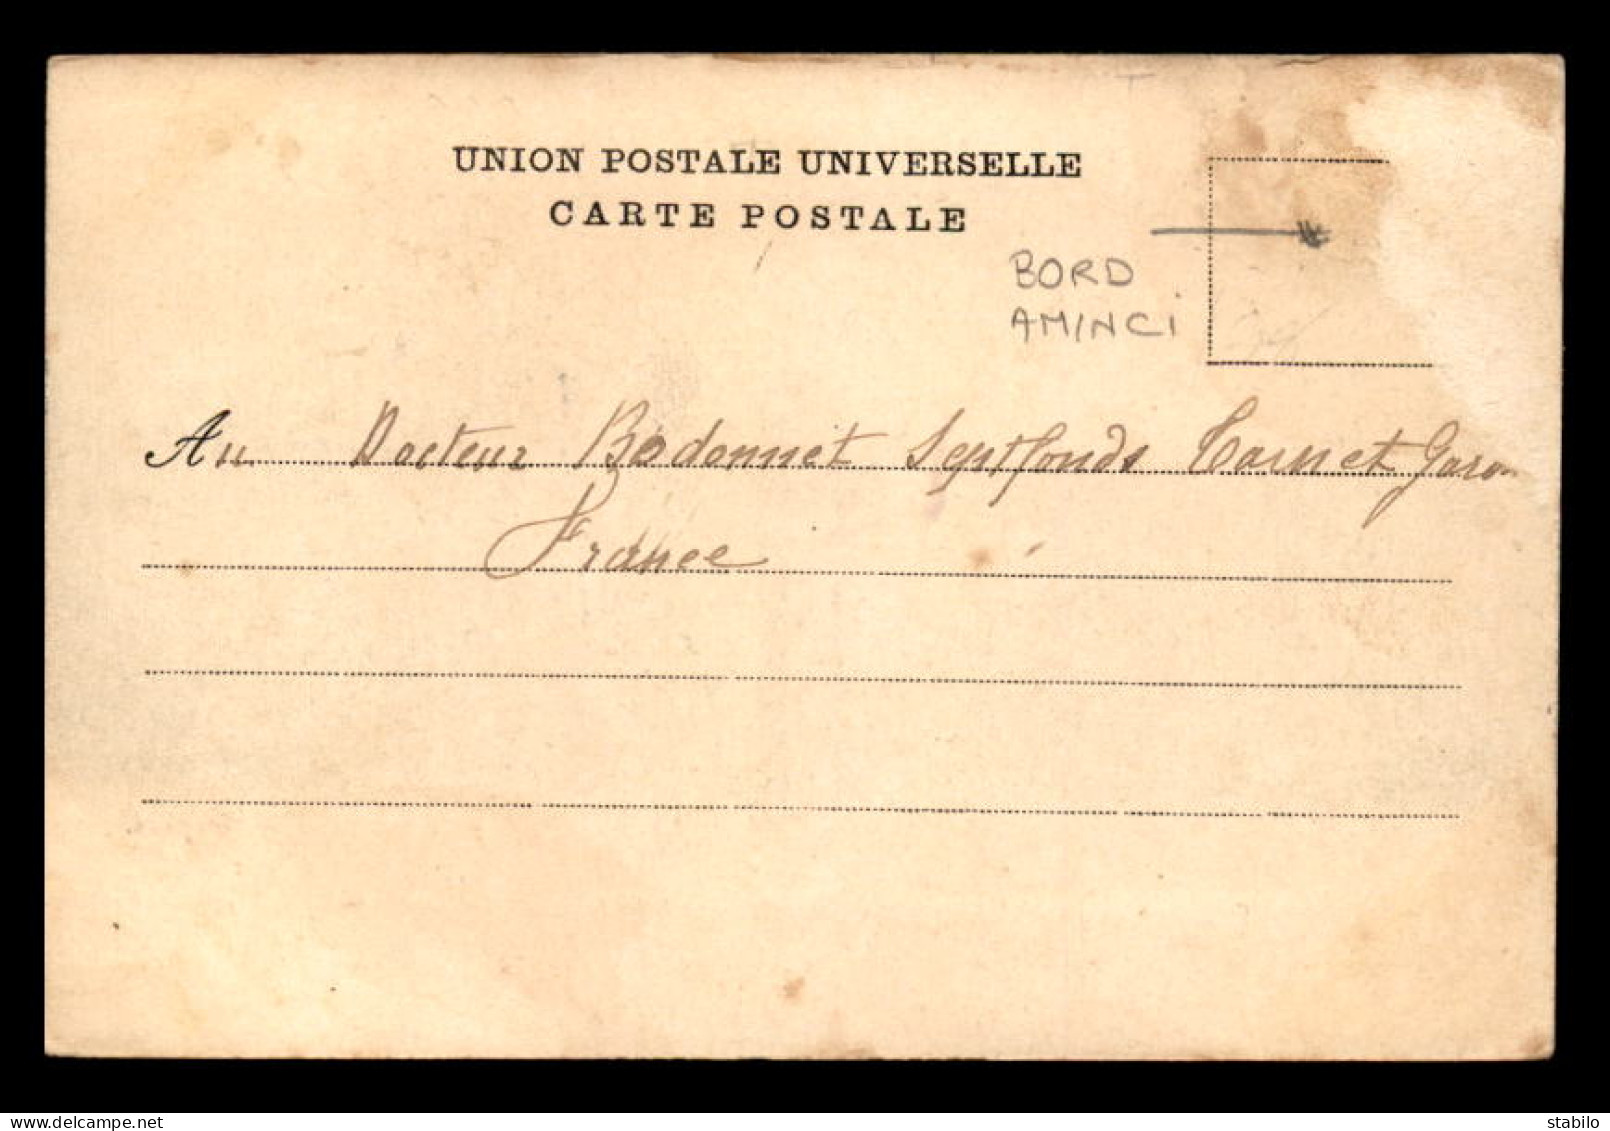 UNION POSTALE UNIVERSELLE
CARTE POSTALE
BORD
AMINCI
Au Docteur Bodonnet Septfonds Tarn et Garon
France
delcampe.net
stabilo